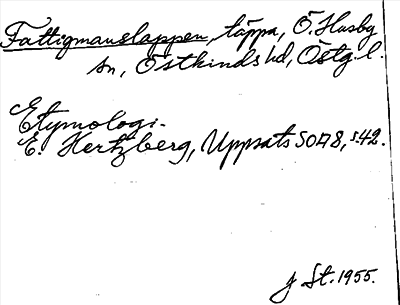 Fattigmanslappen, täppa, Ö. Husby
sn, Östkinds hd, Östg. l.
Etymologi.
E. Hertzberg, Uppsats SOÅ 8, s. 42.
St. 1955.